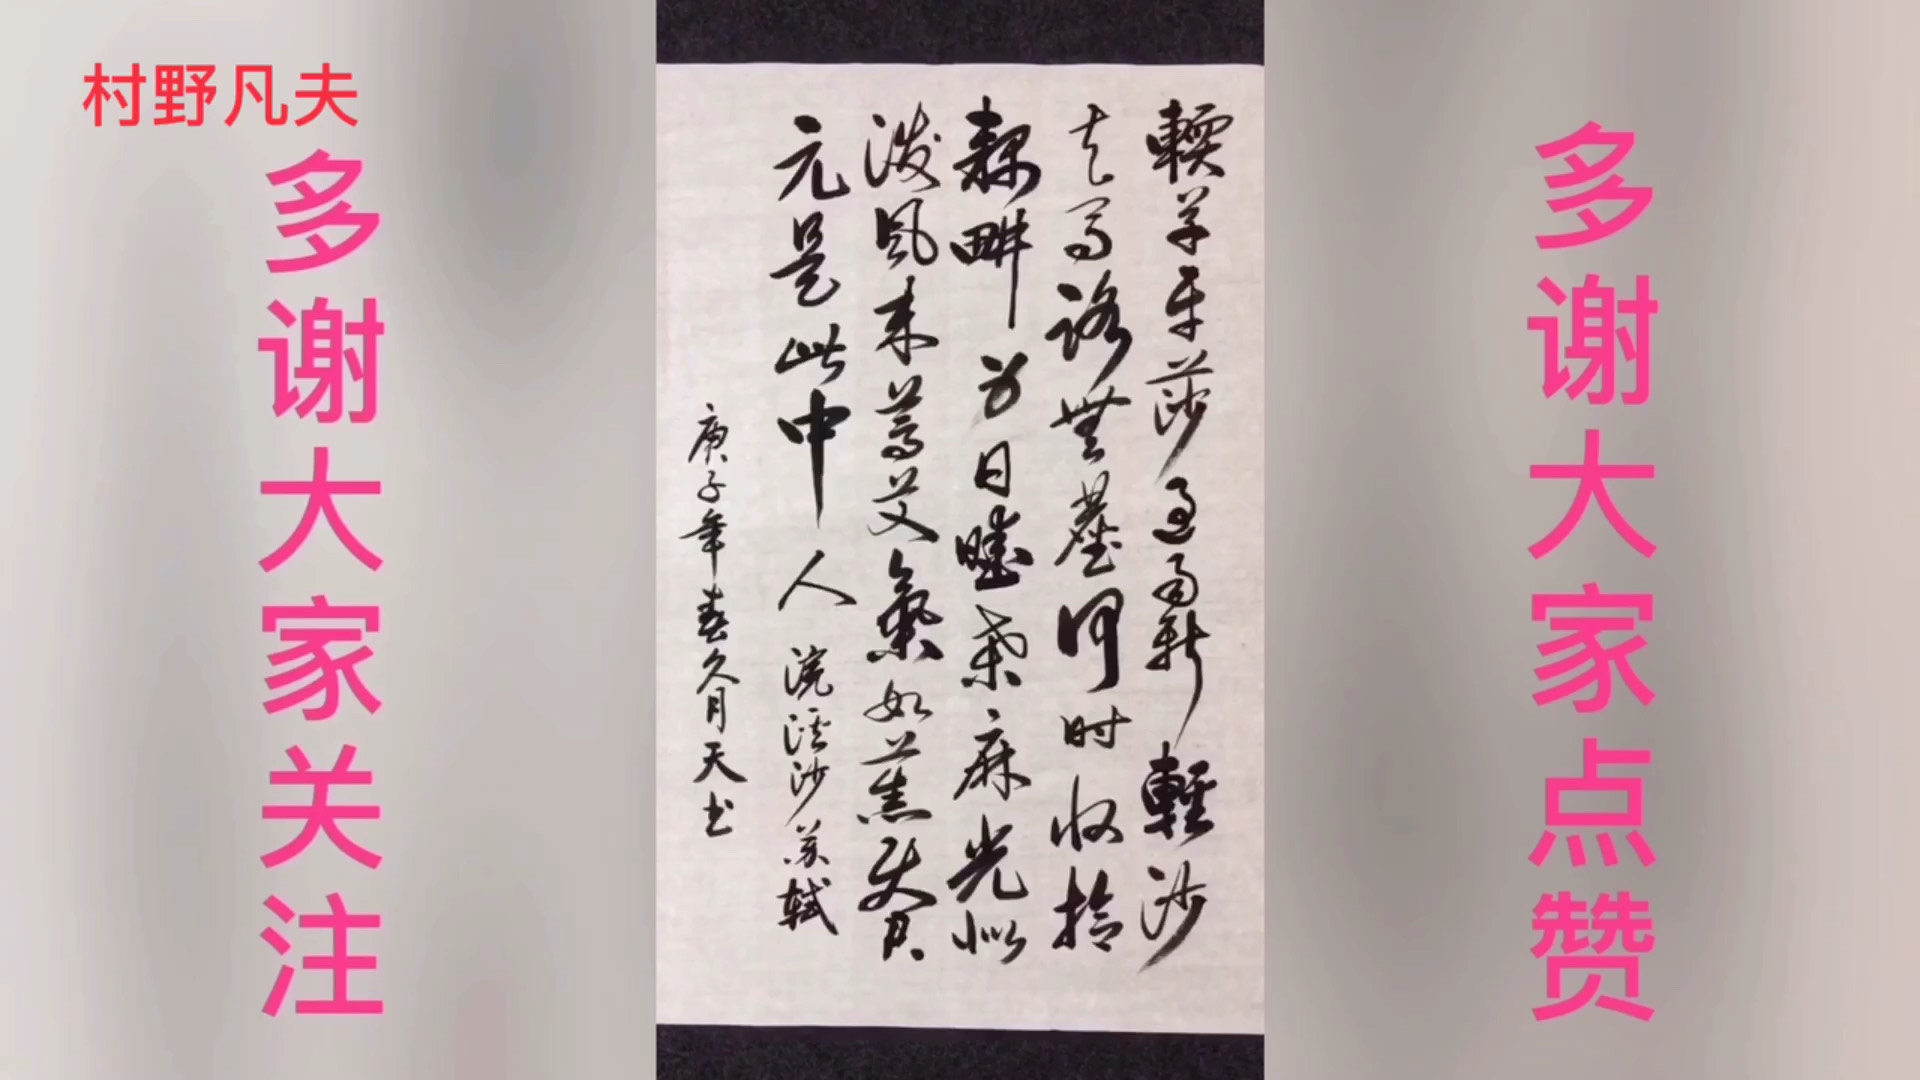 村野凡夫
多谢大家关注
輭草平莎過雨新輕沙
走馬路無塵何时收拾
耦畊身日暖桒麻光似
潑風来蒿艾氣如薰使君
元是此中人浣溪沙苏軾
庚子年春久月天书
多谢大家点赞